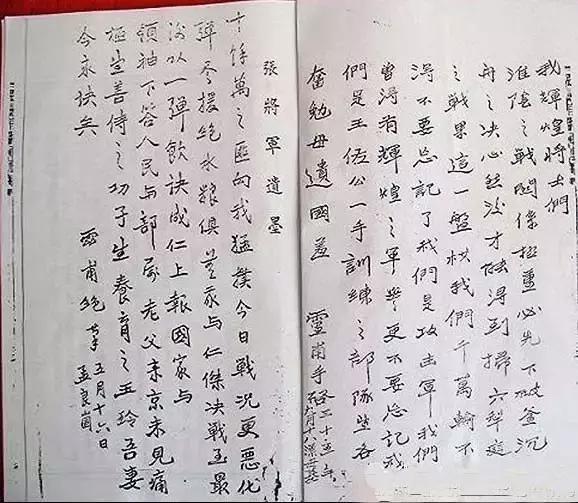 我輝煌將士們
淮陰之戰關係極重必先下破釜沉
舟之決心然後才能得到掃穴犁庭
之戰果這一盤棋我們千萬輸不
得不要忘記了我們是攻擊軍我們
曾得有輝煌之軍譽更不要忘記我
們是王佐公一手訓練之部隊望各
奮勉毋遺國羞 靈甫手啟 三十五年
九月十八深夜
張將軍遺墨
十餘萬之匪向我猛撲今日戰況更惡化
彈盡援絕水糧俱無我與仁傑決戰至最
後以一彈飲訣成仁上報國家與
領袖下答人民與部屬老父來京未見痛
極望善待之幼子望養育之玉玲吾妻
今永訣矣
靈甫絕筆 五月十六日
孟良崮